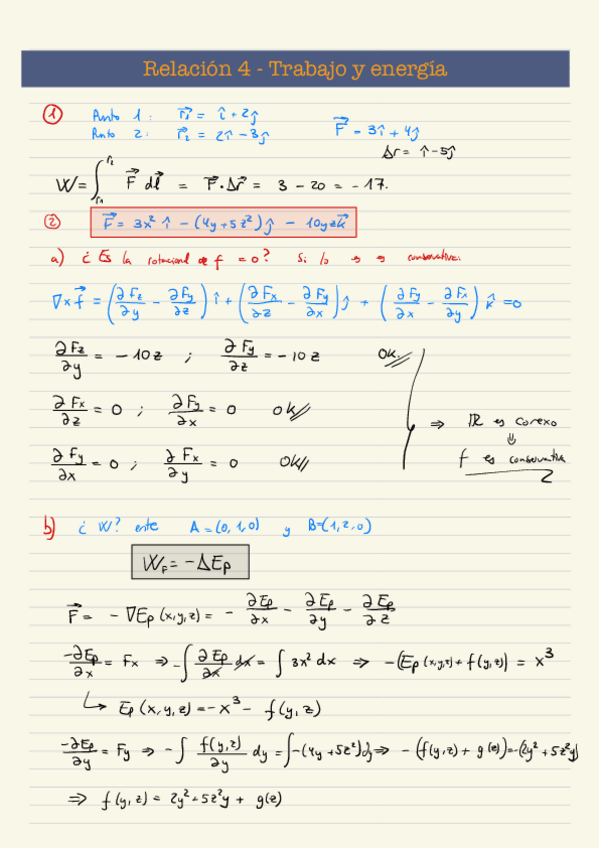 Relación 4 - Trabajo y energía
① Punto 1: r⃗₁ = î + 2ĵ
Punto 2: r⃗₂ = 2î - 3ĵ
F⃗ = 3î + 4ĵ
Δr = î - 5ĵ
W = ∫_{r₁}^{r₂} F⃗ dl⃗ = F⃗·Δr⃗ = 3 - 20 = -17.
② F⃗ = 3x² î - (4y + 5z²) ĵ - 10yz k⃗
a) ¿Es la rotacional de f = 0? Si lo es es conservativa.
∇×f⃗ = (∂Fz/∂y - ∂Fy/∂z) î + (∂Fx/∂z - ∂Fy/∂x) ĵ + (∂Fy/∂x - ∂Fx/∂y) k̂ = 0
∂Fz/∂y = -10z ; ∂Fy/∂z = -10z OK
∂Fx/∂z = 0 ; ∂Fy/∂x = 0 ok
∂Fy/∂x = 0 ; ∂Fx/∂y = 0 OK
⇒ IR es conexo
⇓
f es conservativa
b) ¿W? entre A = (0,1,0) y B=(1,2,0)
W_F = -ΔEp
F⃗ = -∇Ep(x,y,z) = - ∂Ep/∂x - ∂Ep/∂y - ∂Ep/∂z
-∂Ep/∂x = Fx ⇒ -∫ ∂Ep/∂x dx = ∫ 3x² dx ⇒ -(Ep(x,y,z) + f(y,z)) = x³
↳ Ep(x,y,z) = -x³ - f(y,z)
-∂Ep/∂y = Fy ⇒ -∫ f(y,z)/∂y dy = ∫-(4y + 5z²)dy ⇒ -(f(y,z) + g(z)) = -(2y² + 5z²y)
⇒ f(y,z) = 2y² + 5z²y + g(z)